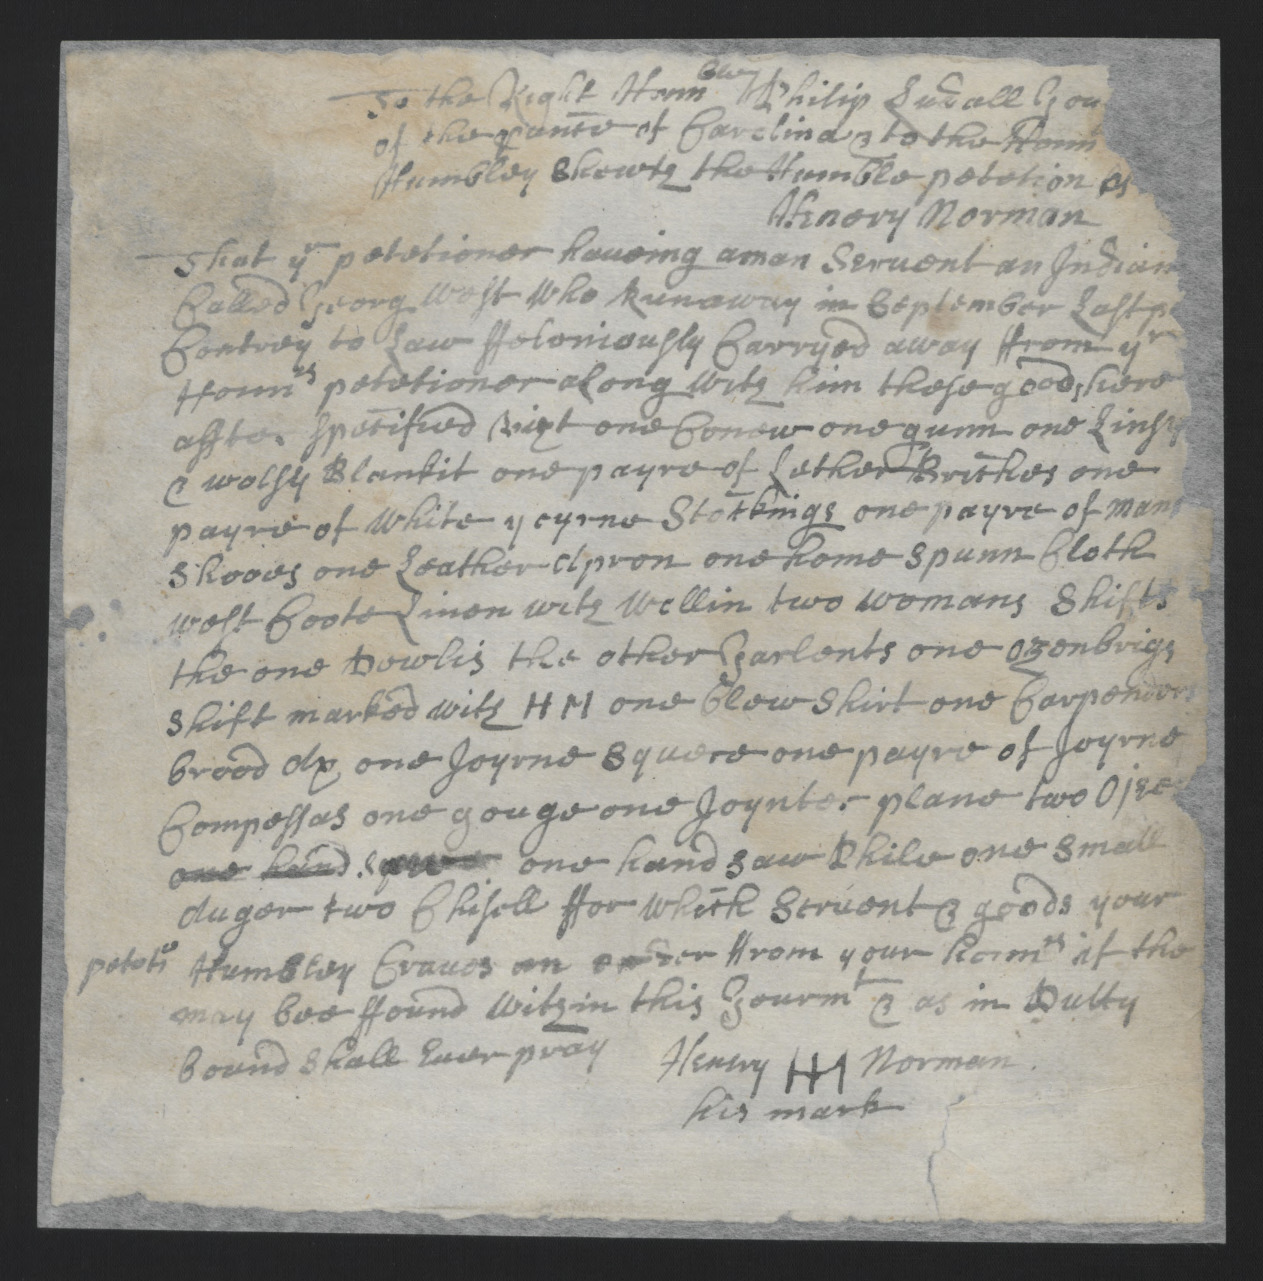 To the Right Honn ble Philip Ludall Gov
of the provance of Carolina & to the Honn
Humbley Shewth the Humble petetion of
Henery Norman
That yr petetioner haveing a man Servent an Indian
Called Georg West Who Runaway in September Last p
Contrey to Law ffeloniously Carryed away ffrom yr
Honnrs petetioner along with him these goods here
affter spetified vizt one Conew one gunn one Linsy
& wolsy Blankit one payre of Lether Britches one
payre of White yeyrne Stockings one payre of mans
Shooes one Leather Apron one home Spunn Cloth
West Coote Linen with Wollin two womans Shifts
the one Dowlis the other Garlents one Ozenbrigs
Shift marked with HN one blew Shirt one Carpenders
brood Ax one Joyrne Squere one payre of Joyrne
Compessas one gouge one Joynter plane two
one hand one hand saw Phile one Small
Auger two Chisell ffor Which Servent & goods your
petetir Humbley Craves an order ffrom your honnrs if the
may bee ffound Within this Gourmt & as in Dutty
bound Shall Ever pray Henery HN Norman
his mark